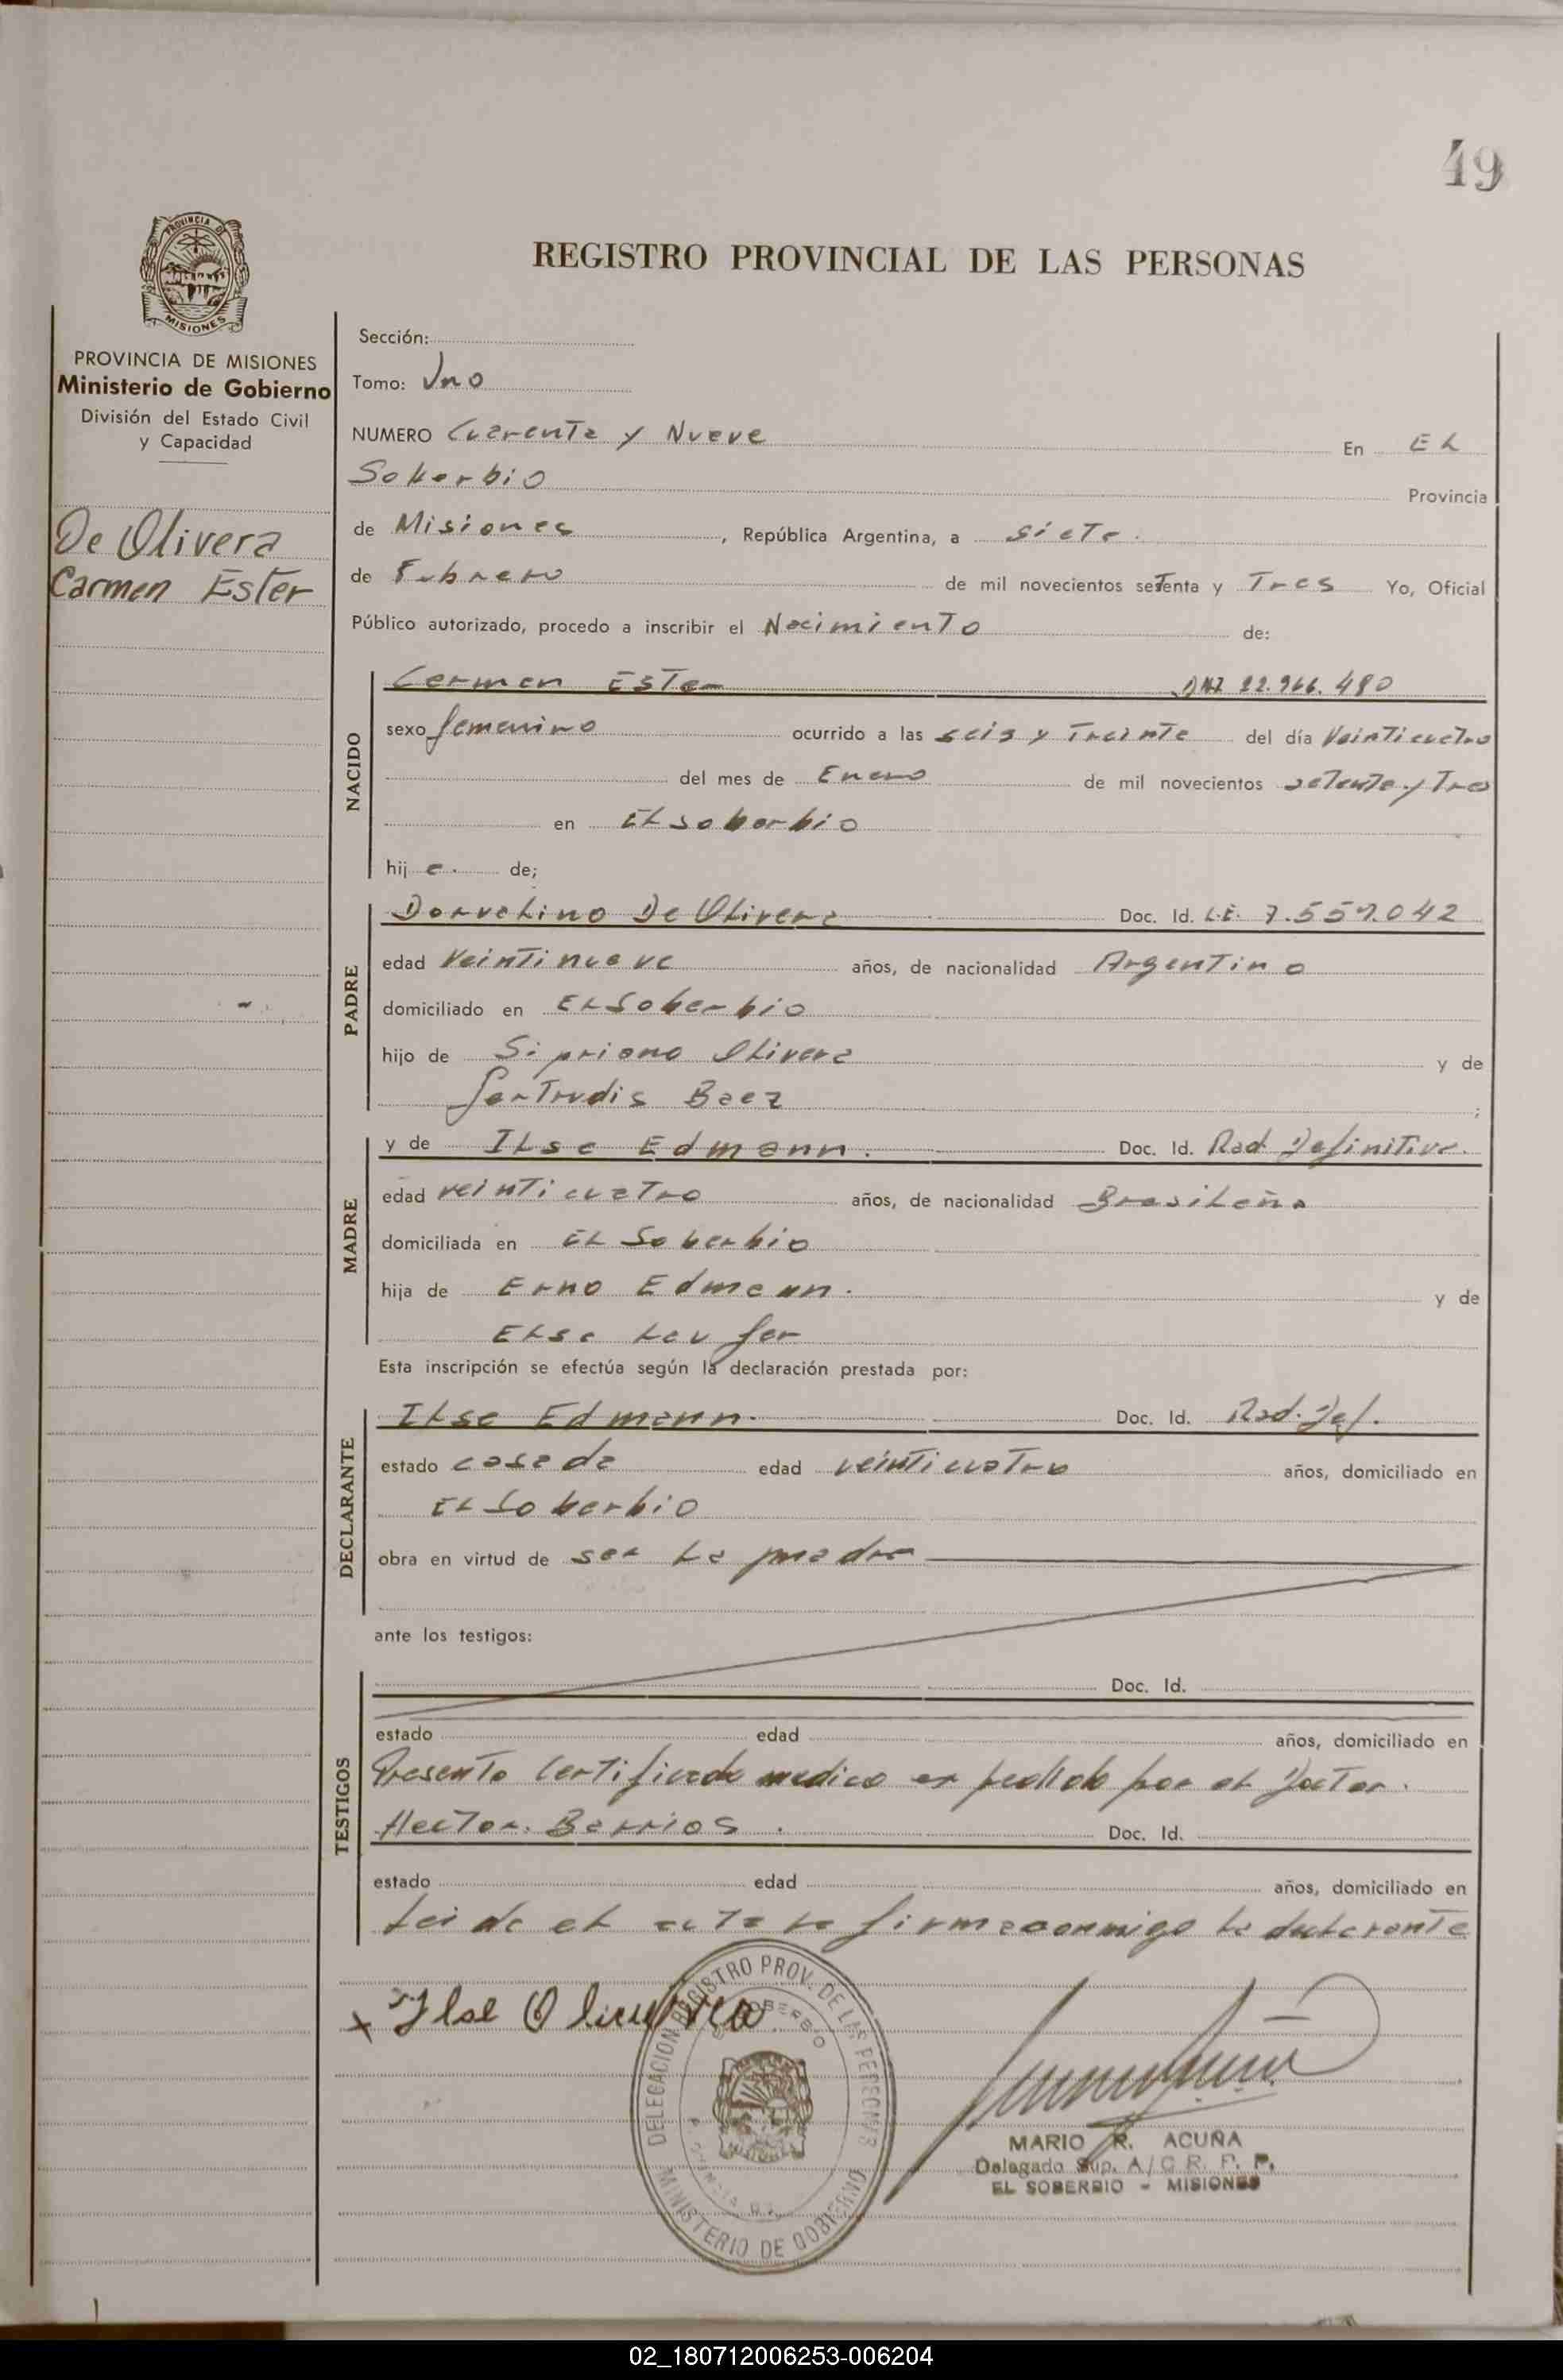 49
PROVINCIA DE
MISIONES
PROVINCIA DE MISIONES
Ministerio de Gobierno
División del Estado Civil
y Capacidad
De Olivera
Carmen Ester
REGISTRO PROVINCIAL DE LAS PERSONAS
Sección:
Tomo: Uno
NUMERO Cuarenta y Nueve En EL
Soberbio Provincia
de Misiones, República Argentina, a siete.
de Febrero de mil novecientos setenta y Tres Yo, Oficial
Público autorizado, procedo a inscribir el Nacimiento de:
NACIDO
Carmen Ester DNI 22.966.480
sexo femenino ocurrido a las seis y Treinta del día Veinticuatro
del mes de Enero de mil novecientos setenta y Tres
en EL soberbio
hij a. de;
PADRE
Dorvelino De Olivera Doc. Id. L.E. 7.557.042
edad Veintinueve años, de nacionalidad Argentino
domiciliado en EL Soberbio
hijo de Sipriano Olivera y de
Gertrudis Baez ;
MADRE
y de ILse Edmann. Doc. Id. Rad. Definitiva.
edad veinticuatro años, de nacionalidad Brasileña
domiciliada en EL Soberbio
hija de Erno Edmann. y de
ELsa Laufer
Esta inscripción se efectúa según la declaración prestada por:
DECLARANTE
ILse Edmann. Doc. Id. Rad. Def.
estado casada edad veinticuatro años, domiciliado en
EL Soberbio
obra en virtud de ser La madre
ante los testigos:
TESTIGOS
Doc. Id.
estado edad años, domiciliado en
Presento Certificado medico expedido por el Doctor.
Hector. Barrios. Doc. Id.
estado edad años, domiciliado en
Leida el acta la firma conmigo la declarante
x Ilse Oliveira
DELEGACION REGISTRO PROV. DE LAS PERSONAS
SOBERBIO
MINISTERIO DE GOBIERNO
MARIO R. ACUÑA
Delegado Sup. A/C R. P. P.
EL SOBERBIO - MISIONES
02_180712006253-006204